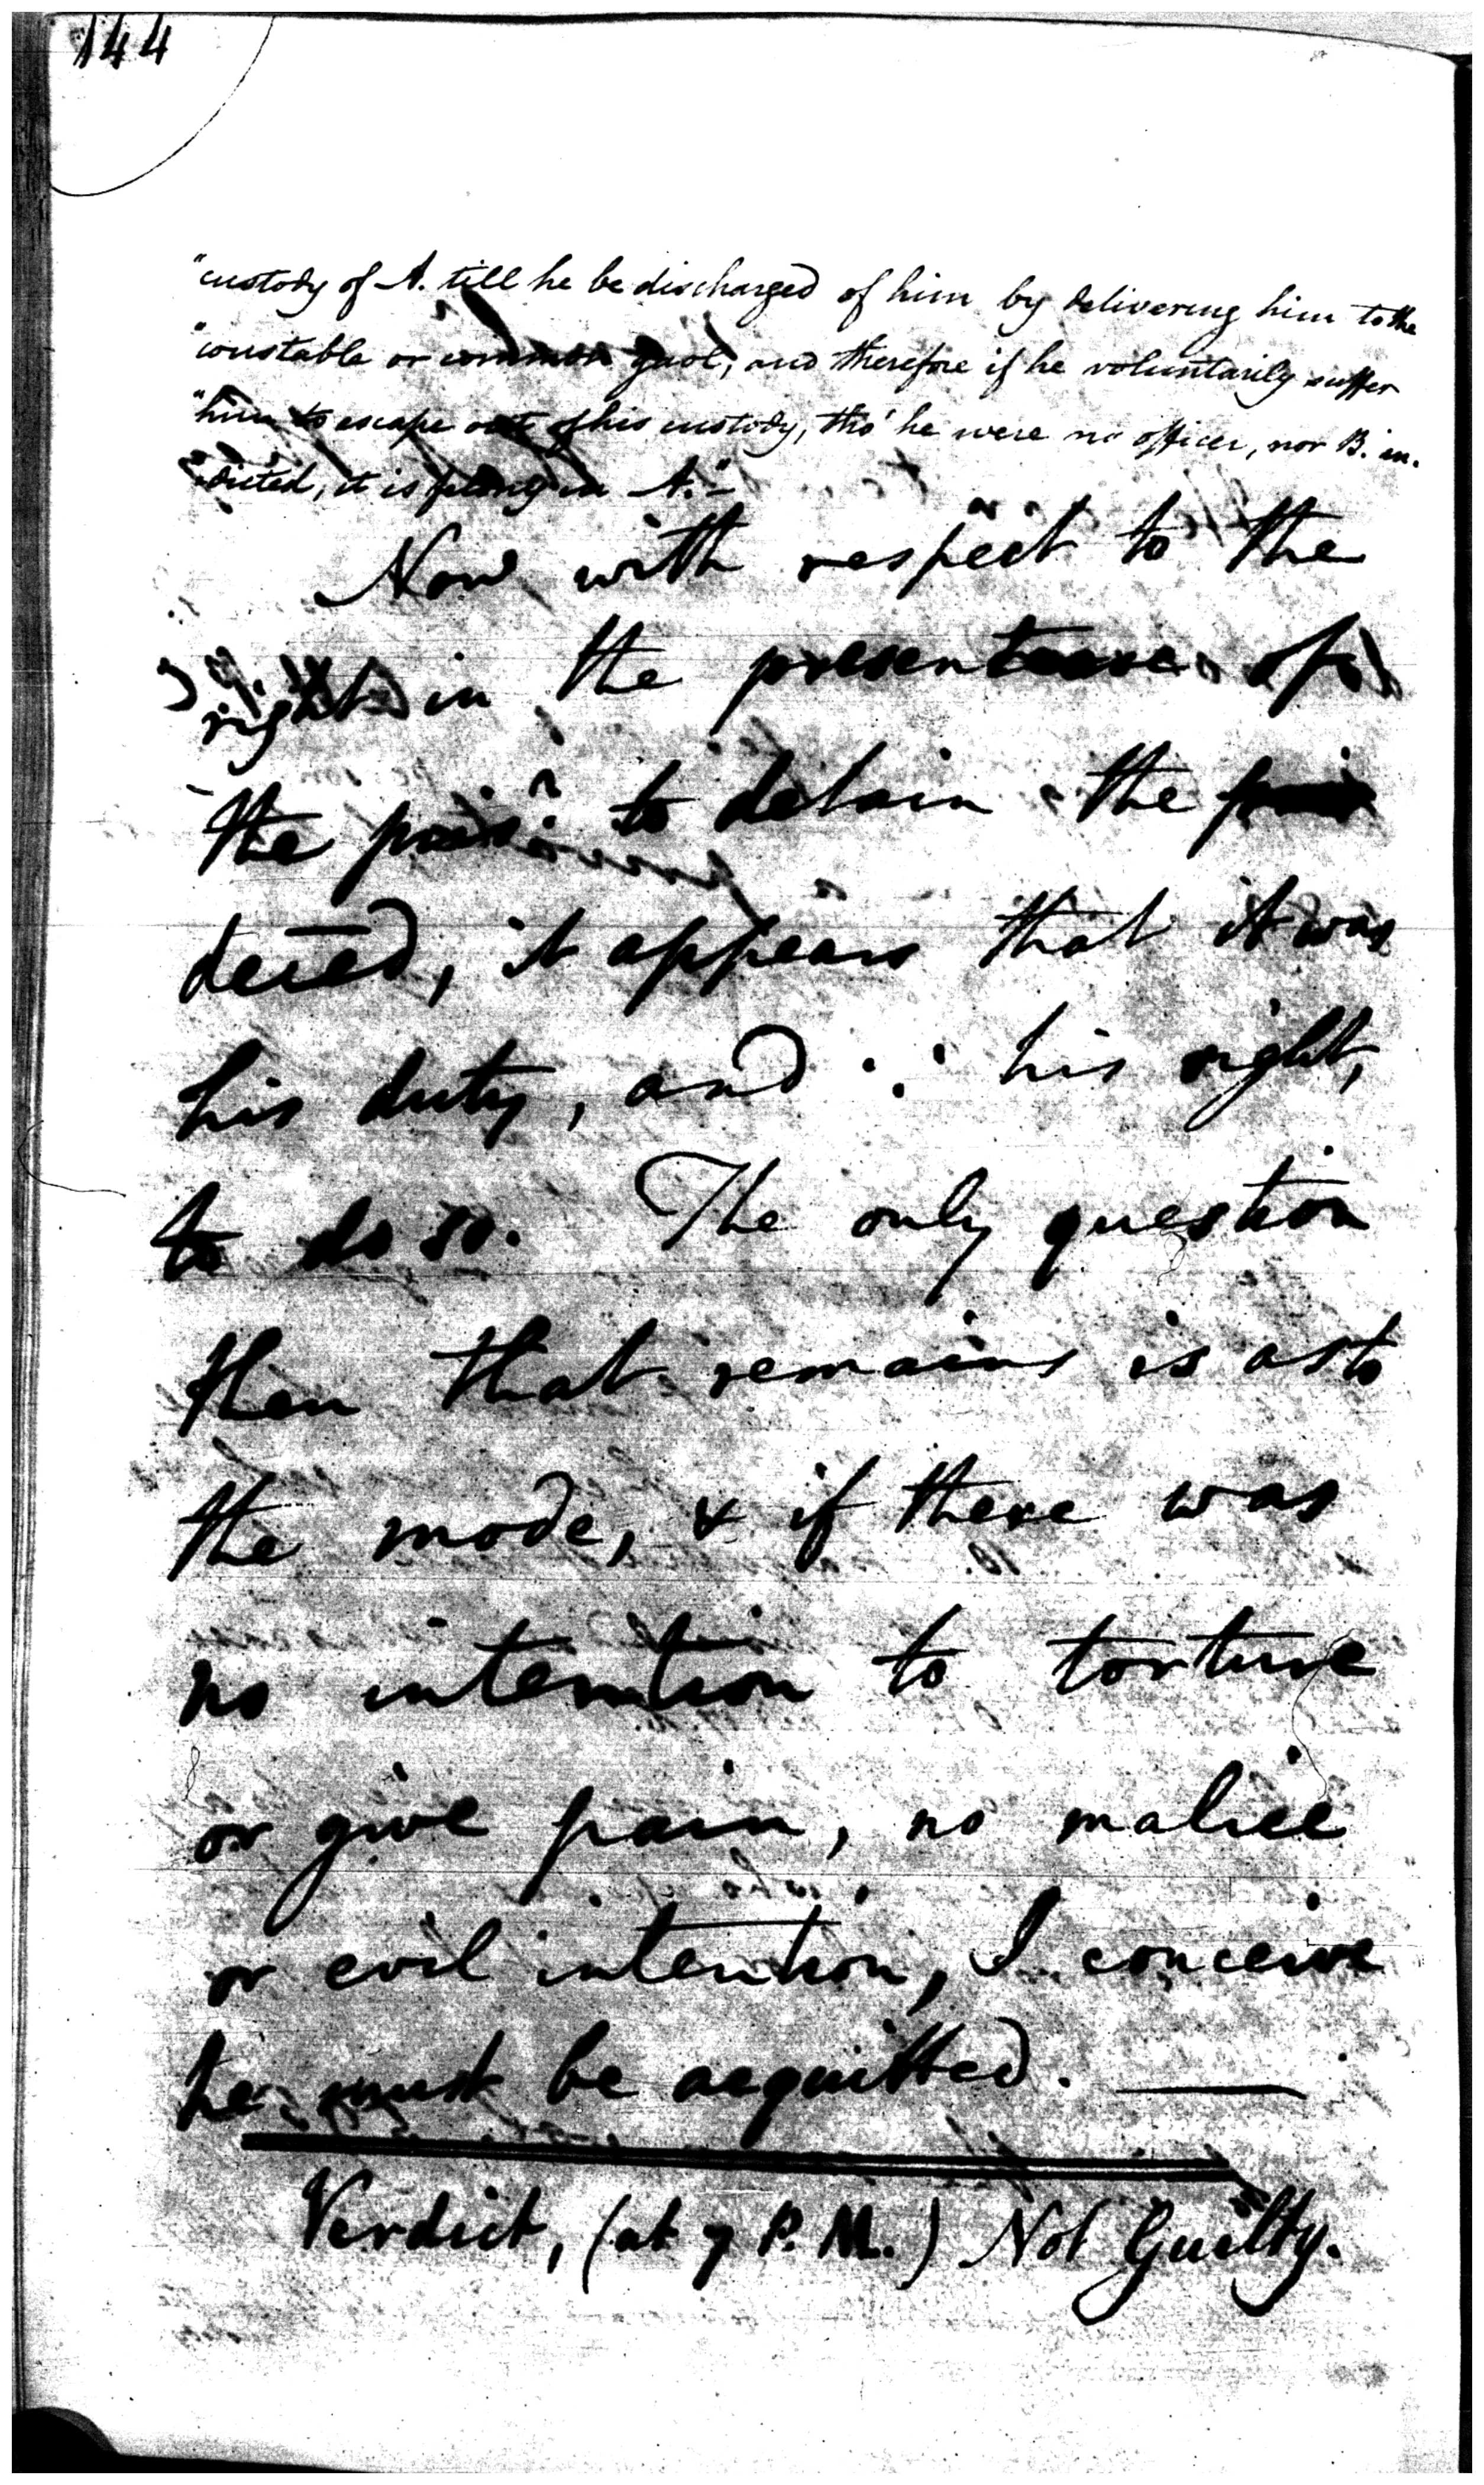 144
"custody of A. till he be discharged of him by delivering him to the
"constable or common gaol, and therefore if he voluntarily suffer
"him to escape out of his custody, tho' he were no officer, nor B. in-
"dicted, it is felony in A."-
Now with respect to the
right in the present case of
the prisr. to detain the
deced, it appears that it was
his duty, and ∴ his right,
to do so. The only question
then that remains is as to
the mode, & if there was
no intention to torture
or give pain, no malice
or evil intention, I conceive
he must be acquitted. —
Verdict, (at 7 P.M.) Not Guilty.